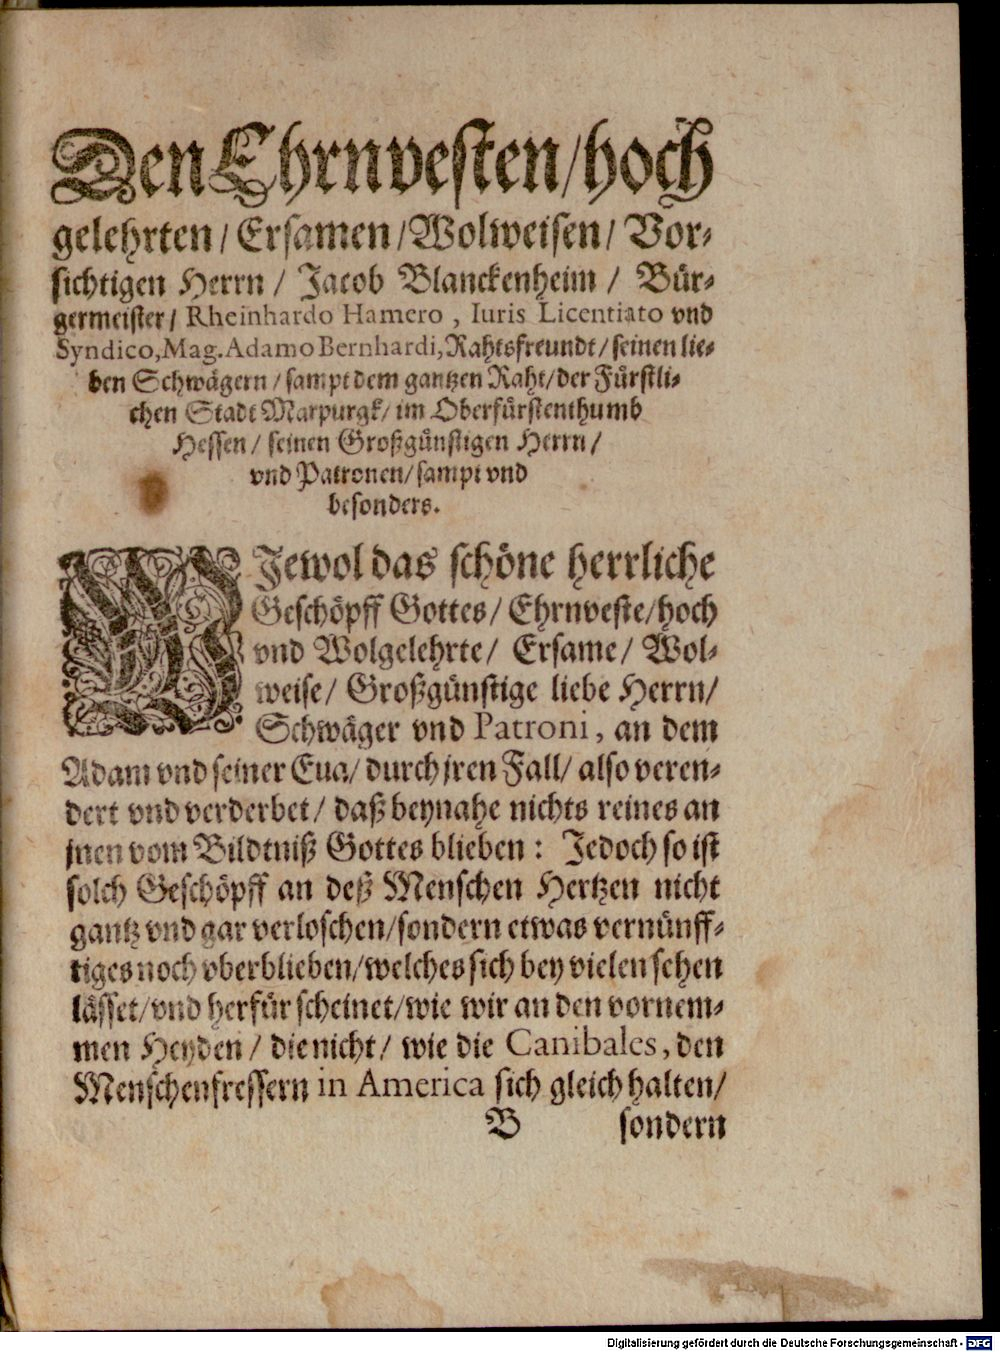 Den Ehrnvesten/hoch
gelehrten/ Ersamen/Wolweisen/ Vor-
sichtigen Herrn / Jacob Blanckenheim / Bür-
germeister/ Rheinhardo Hamero , Iuris Licentiato vnd
Syndico,Mag.Adamo Bernhardi,Rahtsfreundt/ seinen lie-
ben Schwägern/sampt dem gantzen Raht/der Fürstli-
chen Stadt Marpurgk/im Oberfürstenthumb
Hessen/ seinen Großgünstigen Herrn/
vnd Patronen/sampt vnd
besonders.
WJewol das schöne herrliche
Geschöpff Gottes/ Ehrnveste/hoch
vnd Wolgelehrte/ Ersame/ Wol-
weise/ Großgünstige liebe Herrn/
Schwäger vnd Patroni, an dem
Adam vnd seiner Eua/ durch jren Fall/ also veren-
dert vnd verderbet/ daß beynahe nichts reines an
jnen vom Bildtniß Gottes blieben: Jedoch so ist
solch Geschöpff an deß Menschen Hertzen nicht
gantz vnd gar verloschen/sondern etwas vernünff-
tiges noch vberblieben/welches sich bey vielen sehen
lässet/vnd herfür scheinet/wie wir an den vornem-
men Heyden/ die nicht/ wie die Canibales, den
Menschenfressern in America sich gleich halten/
B sondern
Digitalisierung gefördert durch die Deutsche Forschungsgemeinschaft - DFG